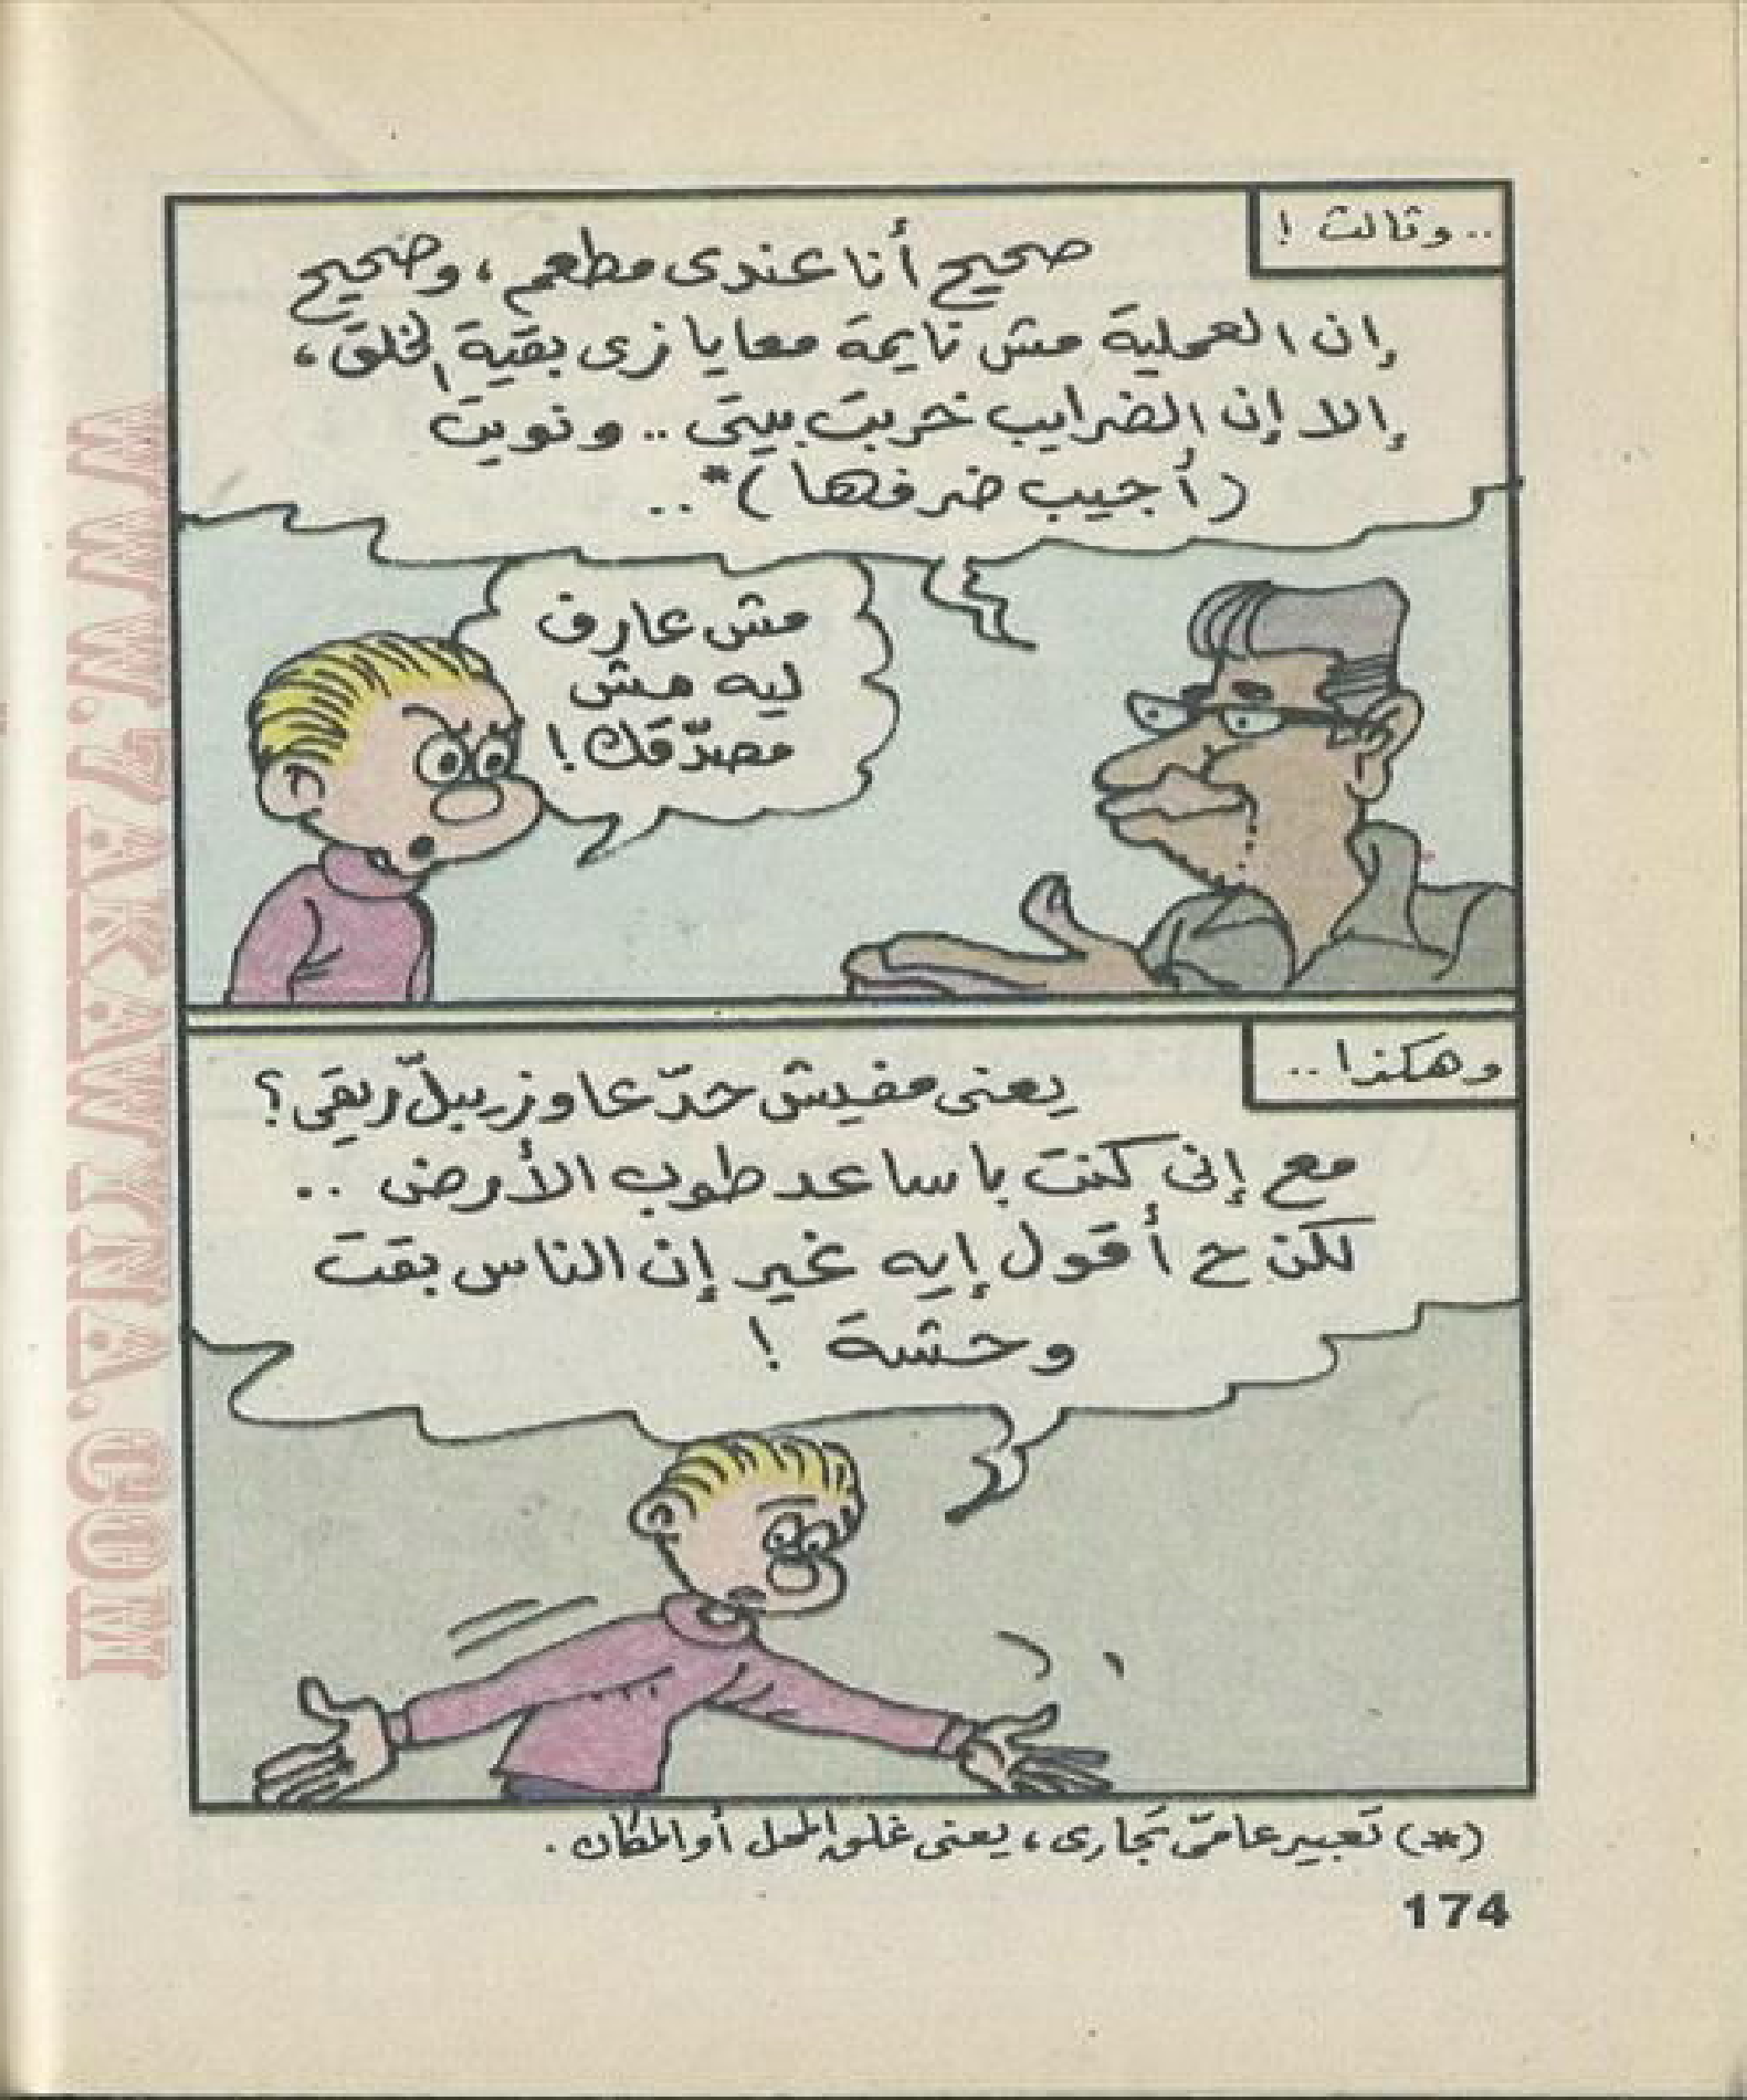 ..وتالت !
صحيح أنا عندى مطعم ، وصحيح
إن العملية مش نايمة معايا زى بقية الخلق ،
إلا إن الضرايب خربت بيتى .. ونويت
(أجيب ضرفها)* ..
مش عارف
ليه مش
مصدّقك !
وهكذا ..
يعنى مفيش حدّ عاوز يبلّ ريقى ؟
مع إنى كنت باساعد طوب الأرض ..
لكن ح أقول إيه غير إن الناس بقت
وحشة !
(*) تعبير عامىّ تجارى ، يعنى غلق المحل أو المكان .
174
WWW.7AKAWITNA.COM